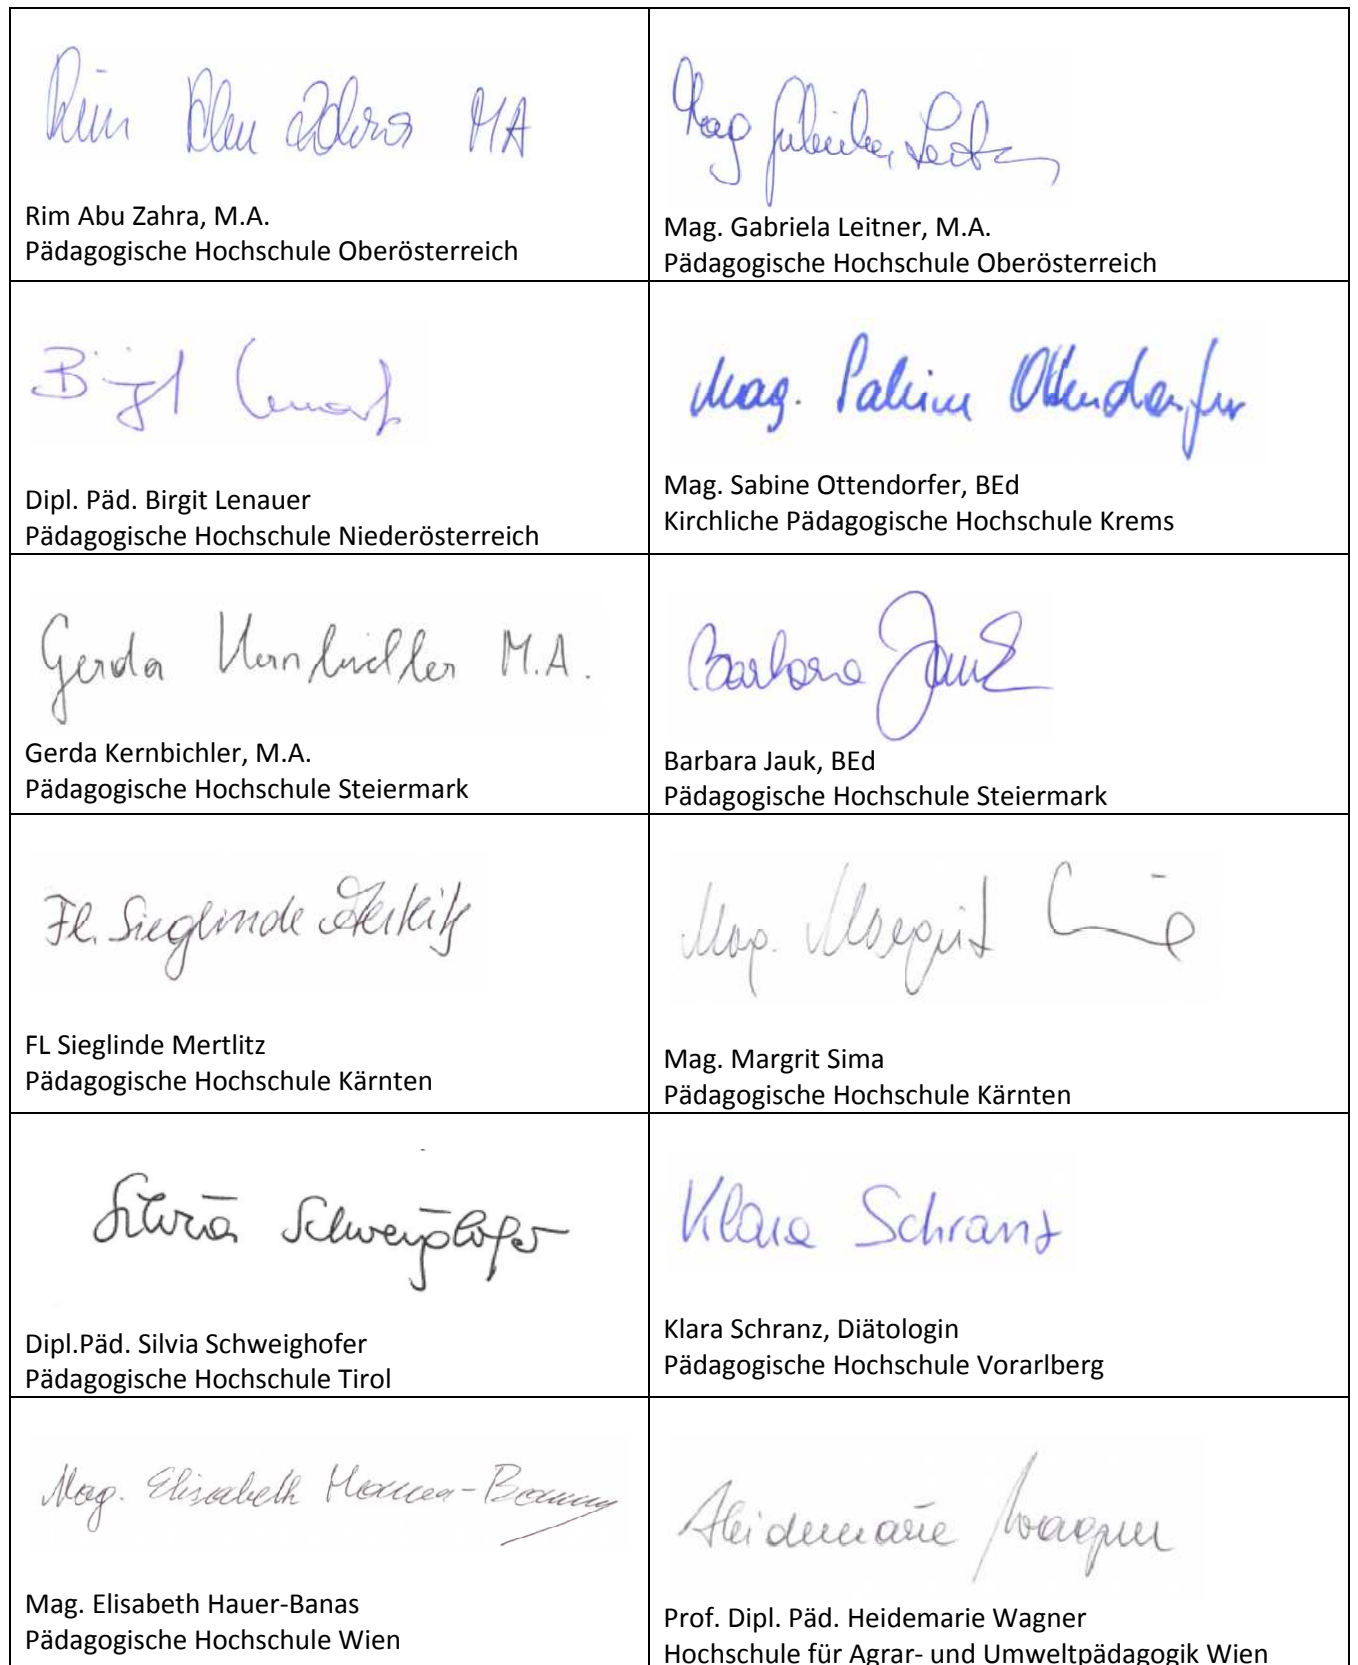 Rim Abu Zahra MA
Rim Abu Zahra, M.A.
Pädagogische Hochschule Oberösterreich
Mag Leitn
Mag. Gabriela Leitner, M.A.
Pädagogische Hochschule Oberösterreich
Birgit
Dipl. Päd. Birgit Lenauer
Pädagogische Hochschule Niederösterreich
Mag. Sabine Ottendorfer
Mag. Sabine Ottendorfer, BEd
Kirchliche Pädagogische Hochschule Krems
Gerda Kernbichler M.A.
Gerda Kernbichler, M.A.
Pädagogische Hochschule Steiermark
Barbara Jauk
Barbara Jauk, BEd
Pädagogische Hochschule Steiermark
FL. Sieglinde Mertlitz
FL Sieglinde Mertlitz
Pädagogische Hochschule Kärnten
Mag. Margrit
Mag. Margrit Sima
Pädagogische Hochschule Kärnten
Silvia Schweighofer
Dipl.Päd. Silvia Schweighofer
Pädagogische Hochschule Tirol
Klara Schranz
Klara Schranz, Diätologin
Pädagogische Hochschule Vorarlberg
Mag. Elisabeth Hauer-Banas
Mag. Elisabeth Hauer-Banas
Pädagogische Hochschule Wien
Heidemarie Wagner
Prof. Dipl. Päd. Heidemarie Wagner
Hochschule für Agrar- und Umweltpädagogik Wien